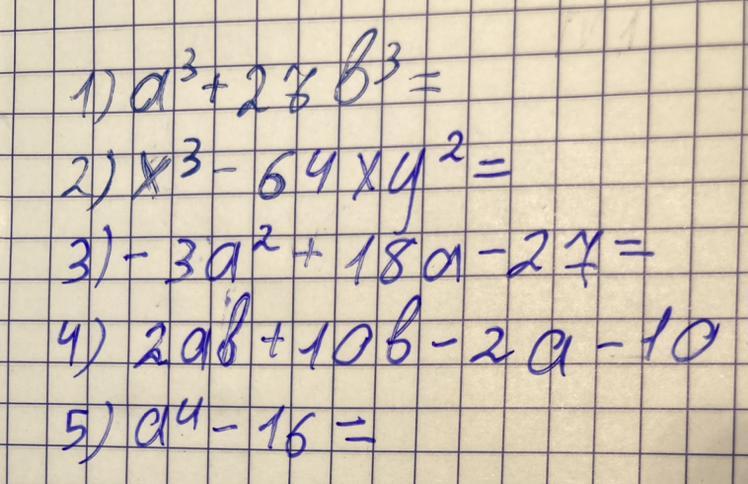 1) a³ + 27b³ =
2) x³ - 64xy² =
3) - 3a² + 18a - 27 =
4) 2ab + 10b - 2a - 10
5) a⁴ - 16 =